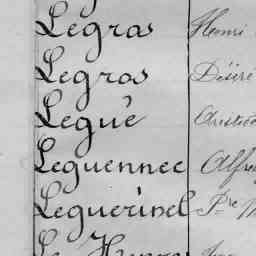 Legras Henri
Legros Désiré
Legué
Leguennec
Leguerinel Pre
Le